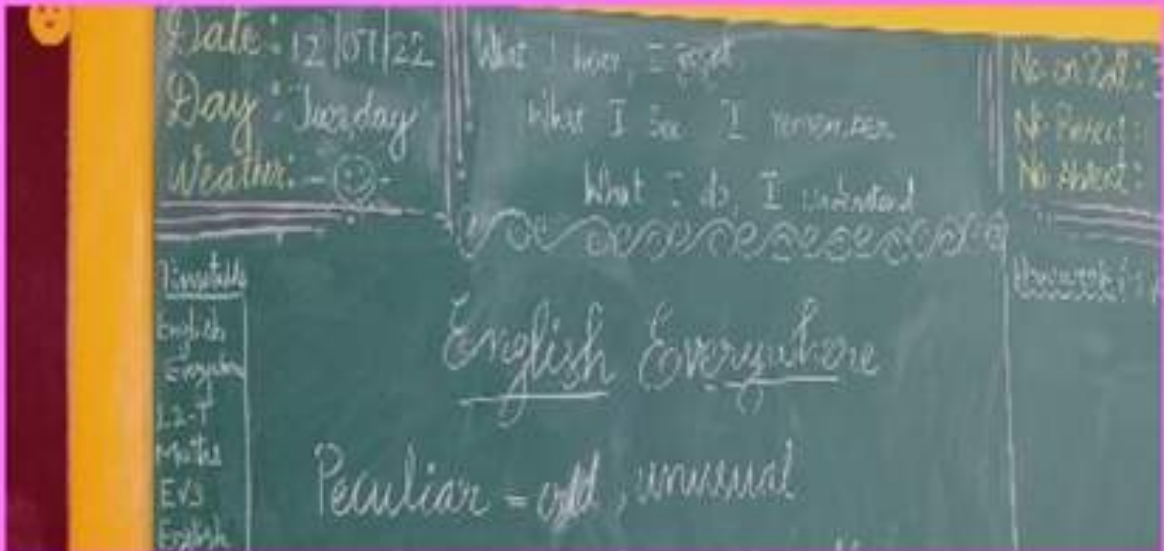 Date: 12/07/22
Day: Tuesday
Weather:
What I hear, I forget
What I see I remember
What I do, I understand
No on Roll:
No Present:
No Absent:
Timetable
English
Everywhere
L2-T
Maths
EVS
English
English Everywhere
Peculiar = odd, unusual
Homework: